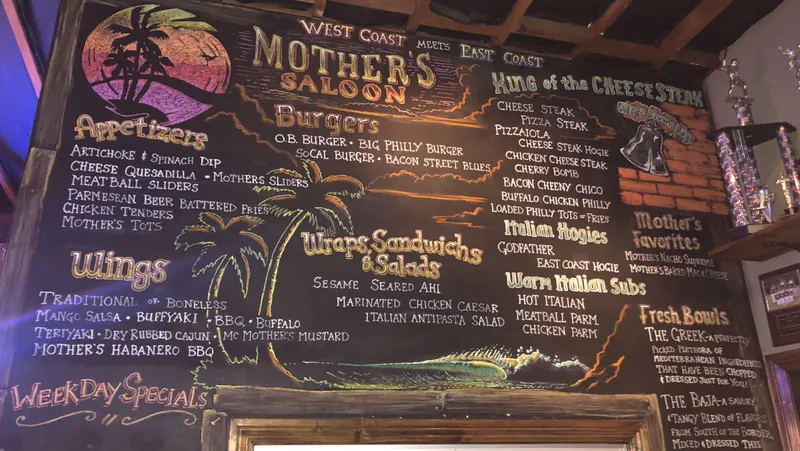 West Coast meets East Coast
Mother's
Saloon
Appetizers
Artichoke & Spinach Dip
Cheese Quesadilla • Mothers Sliders
Meatball Sliders
Parmesean Beer Battered Fries
Chicken Tenders
Mother's Tots
Burgers
O.B. Burger • Big Philly Burger
SoCal Burger • Bacon Street Blues
King of the Cheese Steak
Cheese Steak
Pizza Steak
Pizzaiola
Cheese Steak Hogie
Chicken Cheese Steak
Cherry Bomb
Bacon Cheeny Chico
Buffalo Chicken Philly
Loaded Philly Tots or Fries
Italian Hogies
Godfather
East Coast Hogie
Warm Italian Subs
Hot Italian
Meatball Parm
Chicken Parm
Mother's
Favorites
Mother's Nacho Supreme
Mother's Baked Mac & Cheese
Wings
Traditional or Boneless
Mango Salsa • Buffyaki • BBQ • Buffalo
Teriyaki • Dry Rubbed Cajun • Mc Mother's Mustard
Mother's Habanero BBQ
Wraps, Sandwichs
& Salads
Sesame Seared Ahi
Marinated Chicken Caesar
Italian Antipasta Salad
Fresh Bowls
The Greek - a perfectly
picked plethora of
Mediterranean ingredients
that have been chopped
& dressed just for you!
The Baja - a savory
& tangy blend of flavors
from south of the border,
mixed & dressed this
Weekday Specials